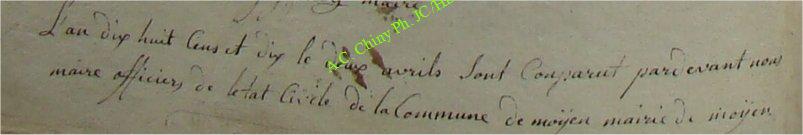 maire
L'an dix huit Cens et dix le deux avrils Sont Comparut pardevant nous
maire officiers de letat Civile de la Commune de moÿen mairie de moÿen
A.C. Chiny Ph. JC/